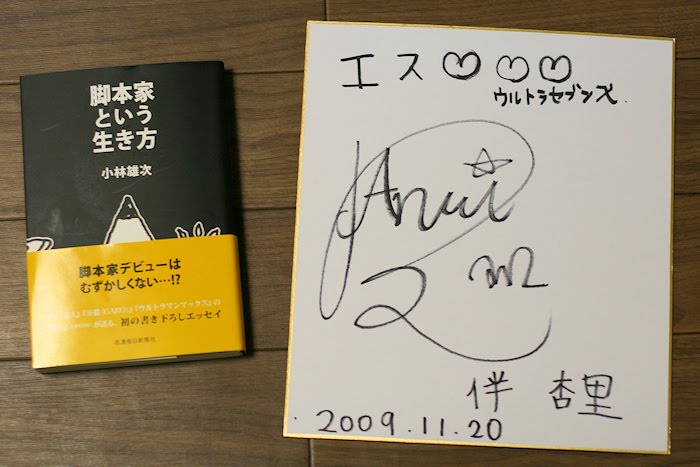 脚本家
という
生き方
小林雄次
脚本家デビューは
むずかしくない…!?
』『牙狼〈GARO〉』『ウルトラマンマックス』の
が送る、初の書き下ろしエッセイ
エス♡♡♡
ウルトラセブンX
Anri
伴 杏里
2009.11.20